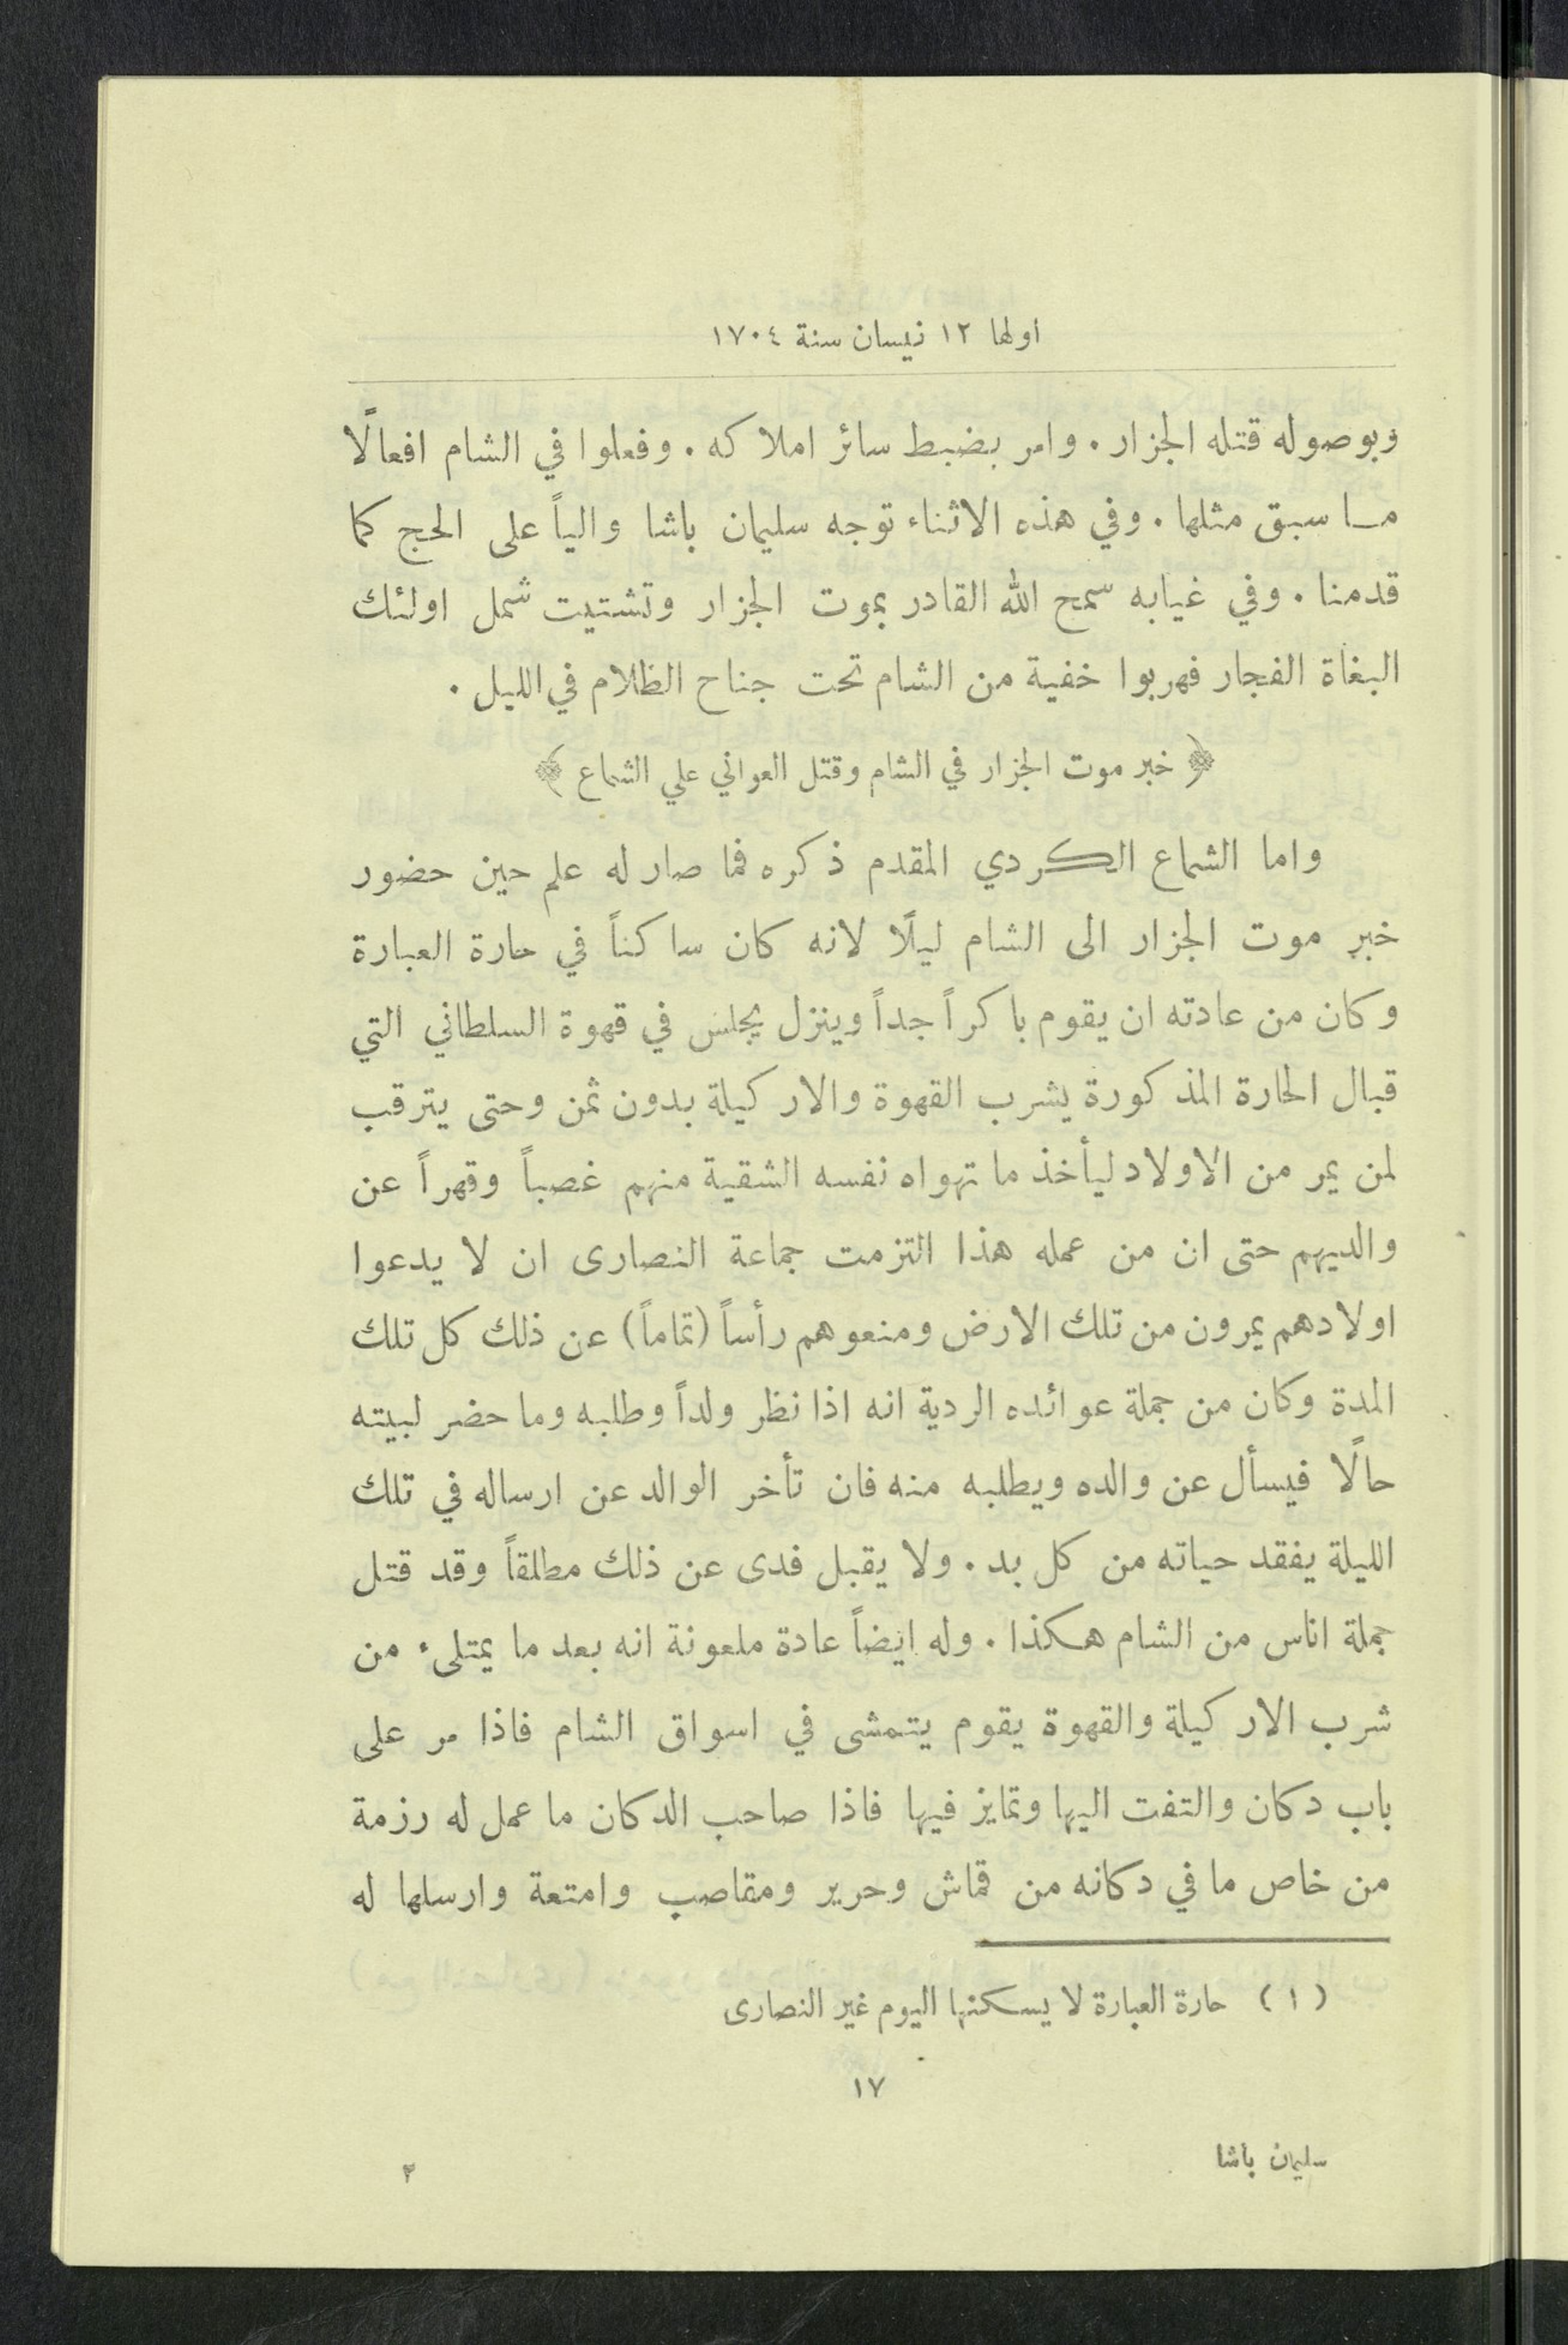 اولها ١٢ نيسان سنة ١٧٠٤
وبوصوله قتله الجزار. وامر بضبط سائر املاكه. وفعلوا في الشام افعالًا
ما سبق مثلها. وفي هذه الاثناء توجه سليمان باشا والياً على الحج كما
قدمنا. وفي غيابه سمح الله القادر بموت الجزار وتشتيت شمل اولئك
البغاة الفجار فهربوا خفية من الشام تحت جناح الظلام في الليل.
﴿ خبر موت الجزار في الشام وقتل العواني علي الشماع ﴾
واما الشماع الكردي المقدم ذكره فما صار له علم حين حضور
خبر موت الجزار الى الشام ليلًا لانه كان ساكناً في حارة العبارة
وكان من عادته ان يقوم باكراً جداً وينزل يجلس في قهوة السلطاني التي
قبال الحارة المذكورة يشرب القهوة والاركيلة بدون ثمن وحتى يترقب
لمن يمر من الاولاد ليأخذ ما تهواه نفسه الشقية منهم غصباً وقهراً عن
والديهم حتى ان من عمله هذا التزمت جماعة النصارى ان لا يدعوا
اولادهم يمرون من تلك الارض ومنعوهم رأساً (تماماً) عن ذلك كل تلك
المدة وكان من جملة عوائده الردية انه اذا نظر ولداً وطلبه وما حضر لبيته
حالًا فيسأل عن والده ويطلبه منه فان تأخر الوالد عن ارساله في تلك
الليلة يفقد حياته من كل بد. ولا يقبل فدى عن ذلك مطلقاً وقد قتل
جملة اناس من الشام هكذا. وله ايضاً عادة ملعونة انه بعد ما يمتلىء من
شرب الاركيلة والقهوة يقوم يتمشى في اسواق الشام فاذا مر على
باب دكان والتفت اليها وتمايز فيها فاذا صاحب الدكان ما عمل له رزمة
من خاص ما في دكانه من قماش وحرير ومقاصب وامتعة وارسلها له
(١) حارة العبارة لا يسكنها اليوم غير النصارى
١٧
سليمان باشا ٣